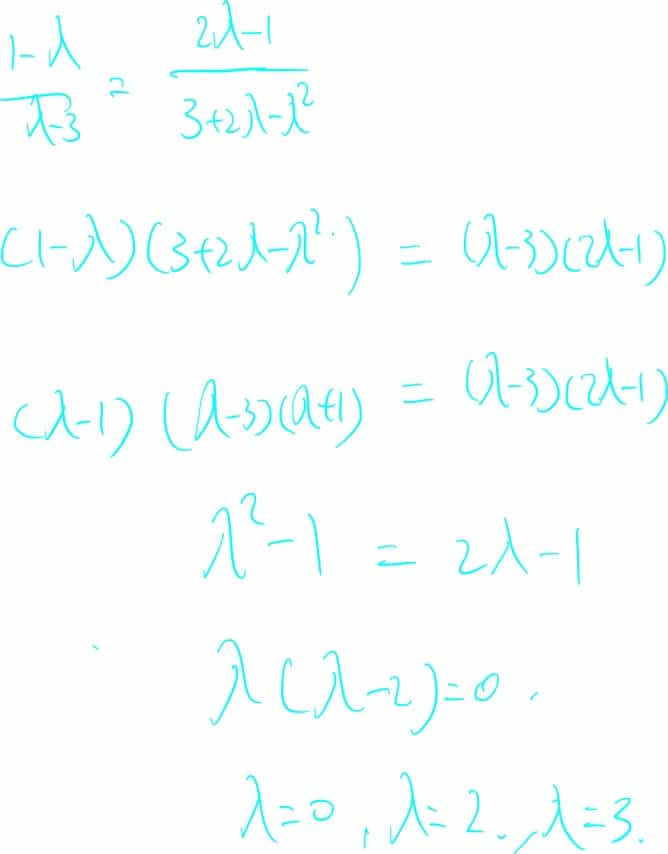 \frac{1-λ}{λ-3} = \frac{2λ-1}{3+2λ-λ^2}
(1-λ)(3+2λ-λ^2) = (λ-3)(2λ-1)
(λ-1)(λ-3)(λ+1) = (λ-3)(2λ-1)
λ^2-1 = 2λ-1
λ(λ-2)=0.
λ=0, λ=2., λ=3.